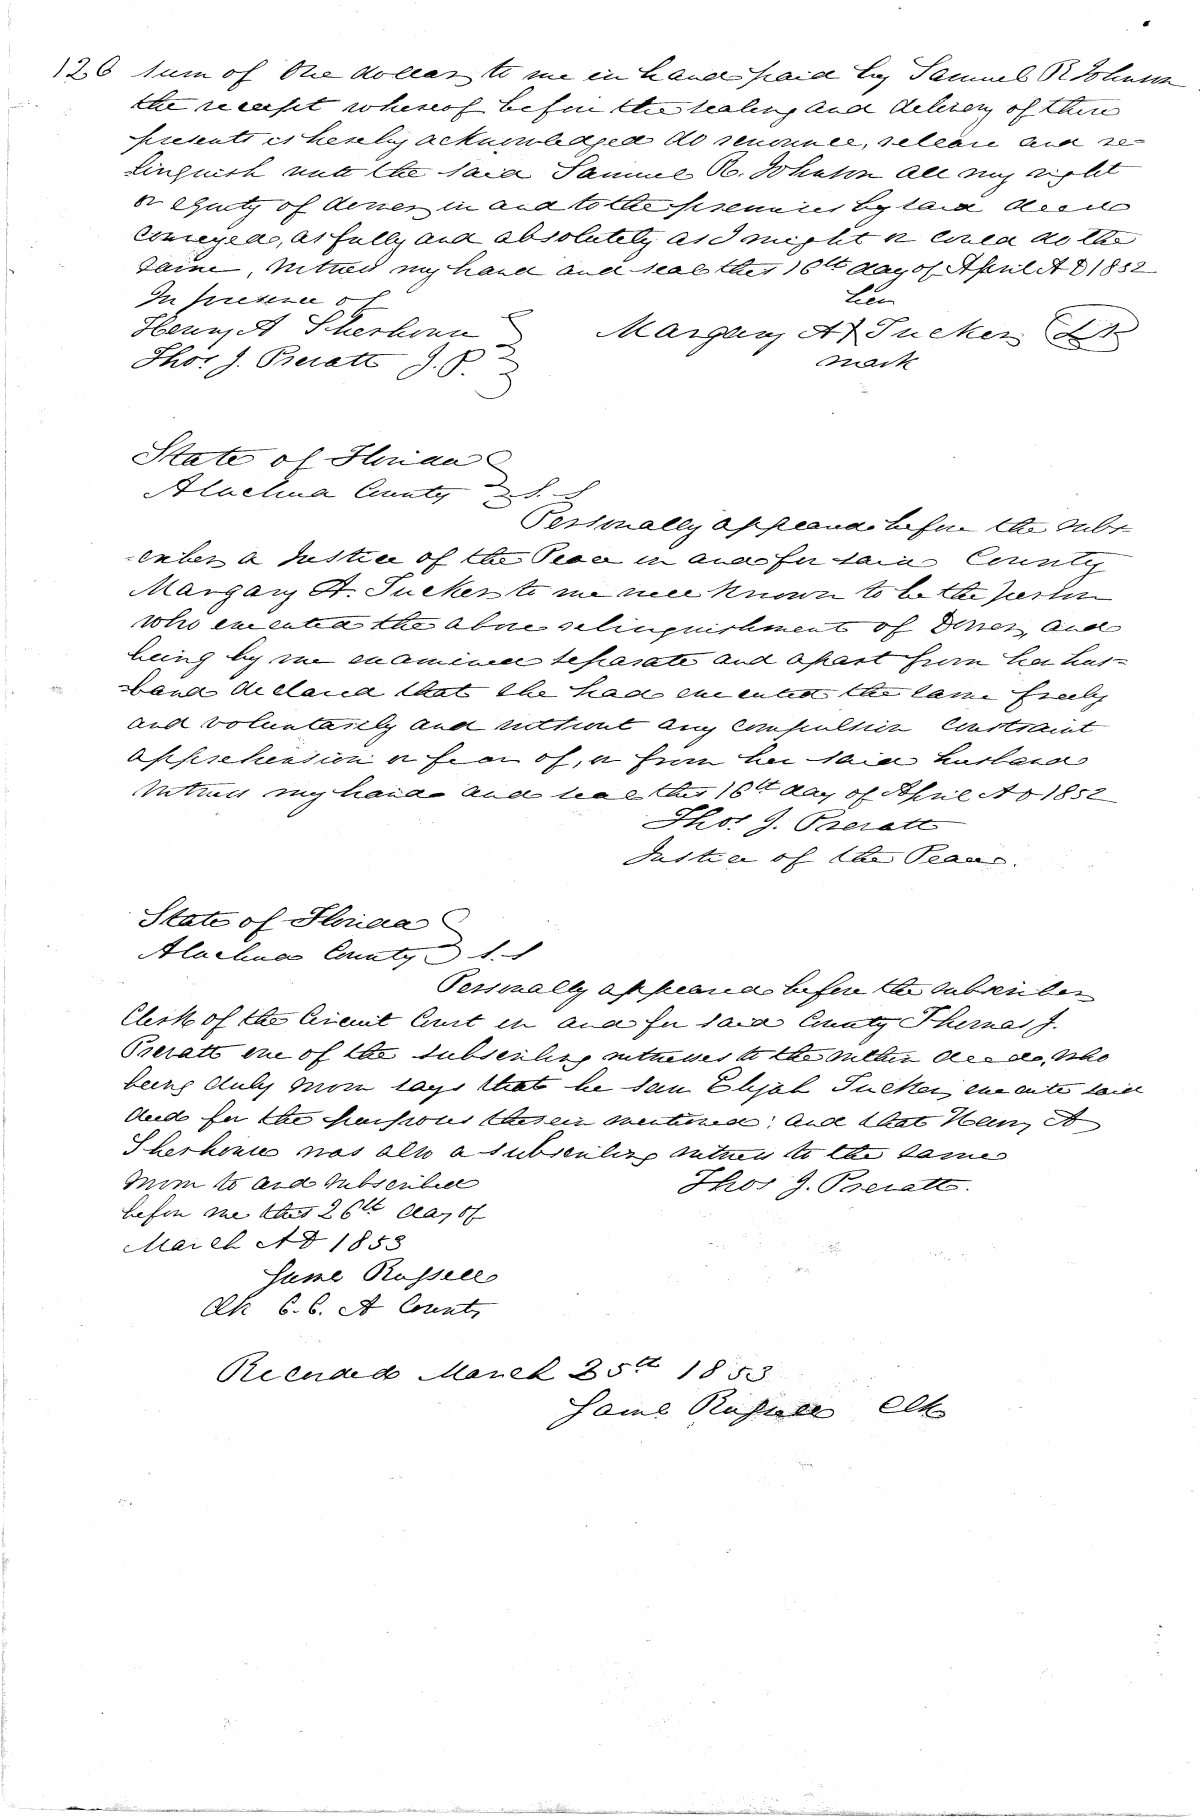 126 sum of One dollar to me in hand paid by Samuel R Johnson
the receipt whereof before the sealing and delivery of these
presents is hereby acknowledged do renounce, release and re-
linquish unto the said Samuel R. Johnson all my right
or equity of dower in and to the premises by said deed
conveyed, as fully and absolutely as I might or could do the
same, witness my hand and seal this 16th day of April A D 1852
In presence of
her
Henry A Sherhouse
Margary A X Tucker LS
Thos. J. Prevatt J. P.
mark
State of Florida
Alachua County S. S
Personally appeared before the subs-
criber a Justice of the Peace in and for said County
Margary A. Tucker to me well known to be the person
who executed the above relinquishment of Dower, and
being by me examined separate and apart from her hus-
band declared that she had executed the same freely
and voluntarily and without any compulsion constraint
apprehension or fear of, or from her said husband
witness my hand and seal this 16th day of April A D 1852
Thos. J. Prevatt
Justice of the Peace.
State of Florida
Alachua County S. S
Personally appeared before the subscriber
Clerk of the Circuit Court in and for said County Thomas J.
Prevatt one of the subscribing witnesses to the within deed, who
being duly sworn says that he saw Elijah Tucker execute said
deed for the purposes therein mentioned; and that Henry A
Sherhouse was also a subscribing witness to the same
sworn to and subscribed
Thos J. Prevatt.
before me this 26th day of
March A D 1853
Saml Russell
Clk C. C. A County
Recorded March 25th 1853
Saml Russell Clk